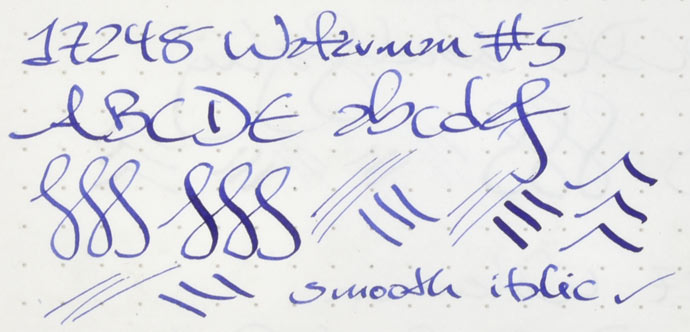 17248 Waterman #5
ABCDE abcdef
smooth italic ✓